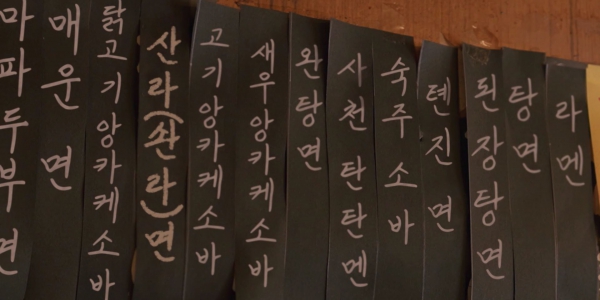 마파두부면
매운면
닭고기앙카케소바
산라(쏸라)면
고기앙카케소바
새우앙카케소바
완탕면
사천탄탄멘
숙주소바
텐진면
된장탕면
탕면
라멘